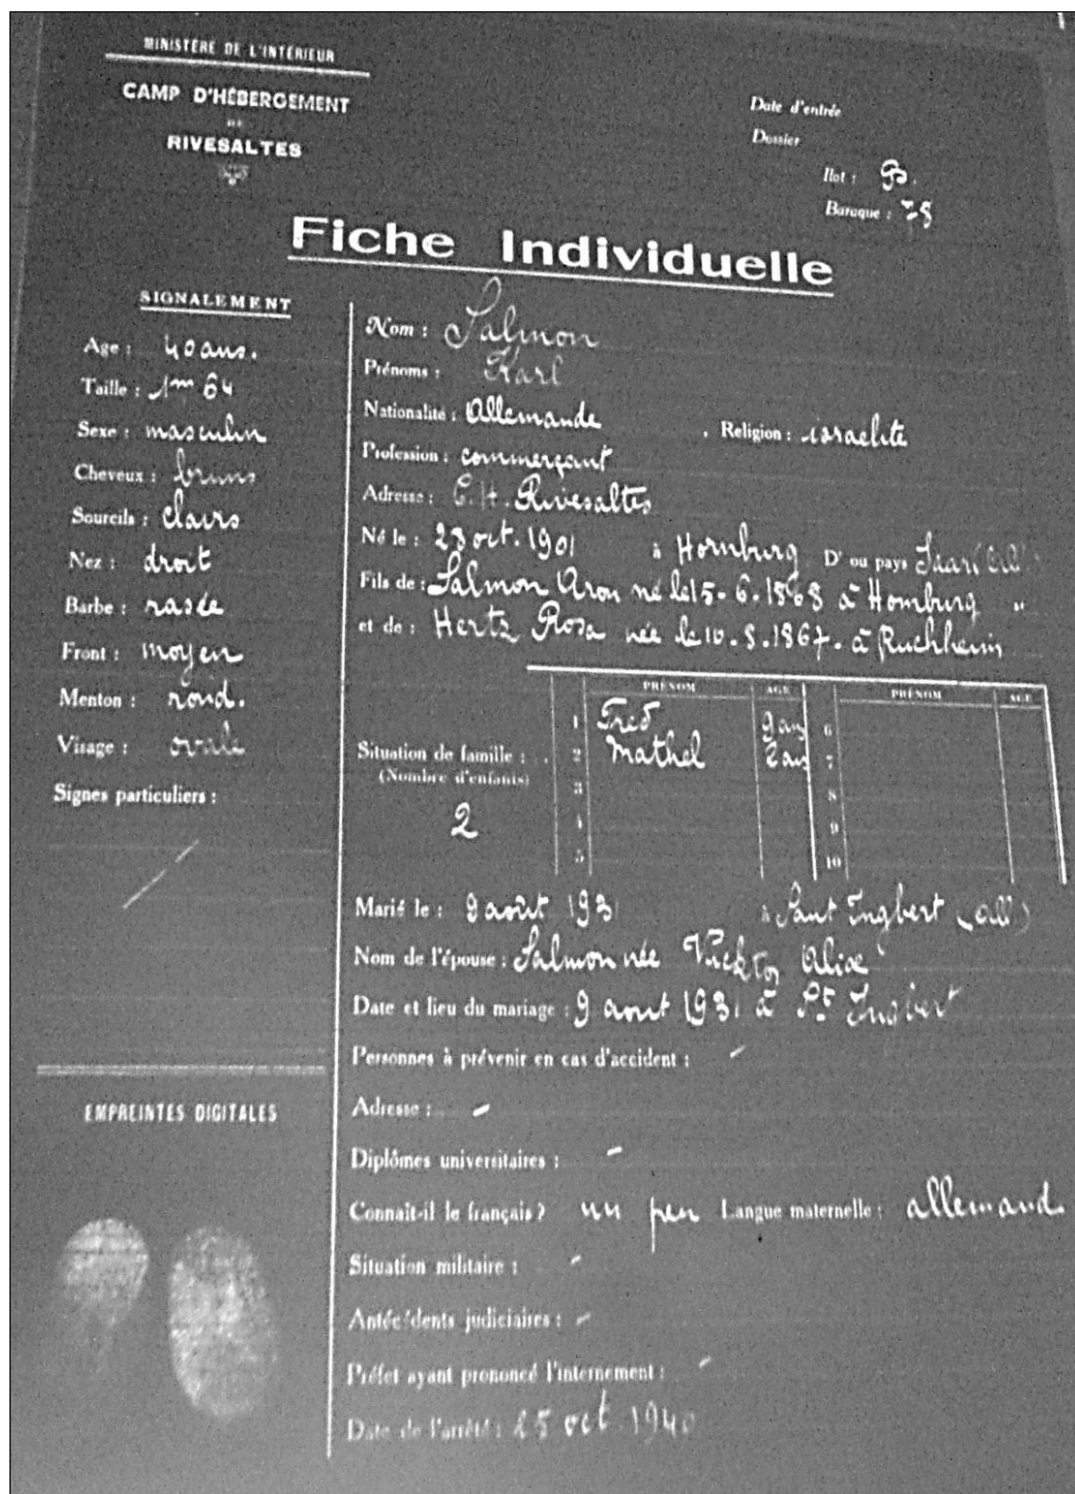 MINISTÈRE DE L'INTÉRIEUR
CAMP D'HÉBERGEMENT
DE
RIVESALTES
Date d'entrée
Dossier
Ilot :
Baraque :
Fiche Individuelle
SIGNALEMENT
Age : 40 ans.
Taille : 1m 64
Sexe : masculin
Cheveux : bruns
Sourcils : clairs
Nez : droit
Barbe : rasée
Front : moyen
Menton : rond.
Visage : ovale
Signes particuliers :
EMPREINTES DIGITALES
Nom : Salmon
Prénoms : Karl
Nationalité : Allemande . Religion : israelite
Profession : commerçant
Adresse : C.H. Rivesaltes
Né le : 23 oct. 1901 à Homburg Dt ou pays
Fils de : Salmon Aron né le 15-6.1868 à Homburg "
et de : Hertz Rosa née le 10.8.1867. à Ruchheim
PRÉNOM AGE PRÉNOM AGE
1 Fred 9 ans 6
2 Mathel 2 ans 7
3 8
4 9
5 10
Situation de famille :
(Nombre d'enfants)
2
Marié le : 9 août 1931 à Saint Ingbert (All)
Nom de l'épouse : Salmon née Alice
Date et lieu du mariage : 9 aout 1931 à St Ingbert
Personnes à prévenir en cas d'accident : -
Adresse : -
Diplômes universitaires : -
Connait-il le français ? un peu Langue maternelle : allemand
Situation militaire : -
Antécédents judiciaires : -
Préfet ayant prononcé l'internement : -
Date de l'arrêté : 25 oct 1940